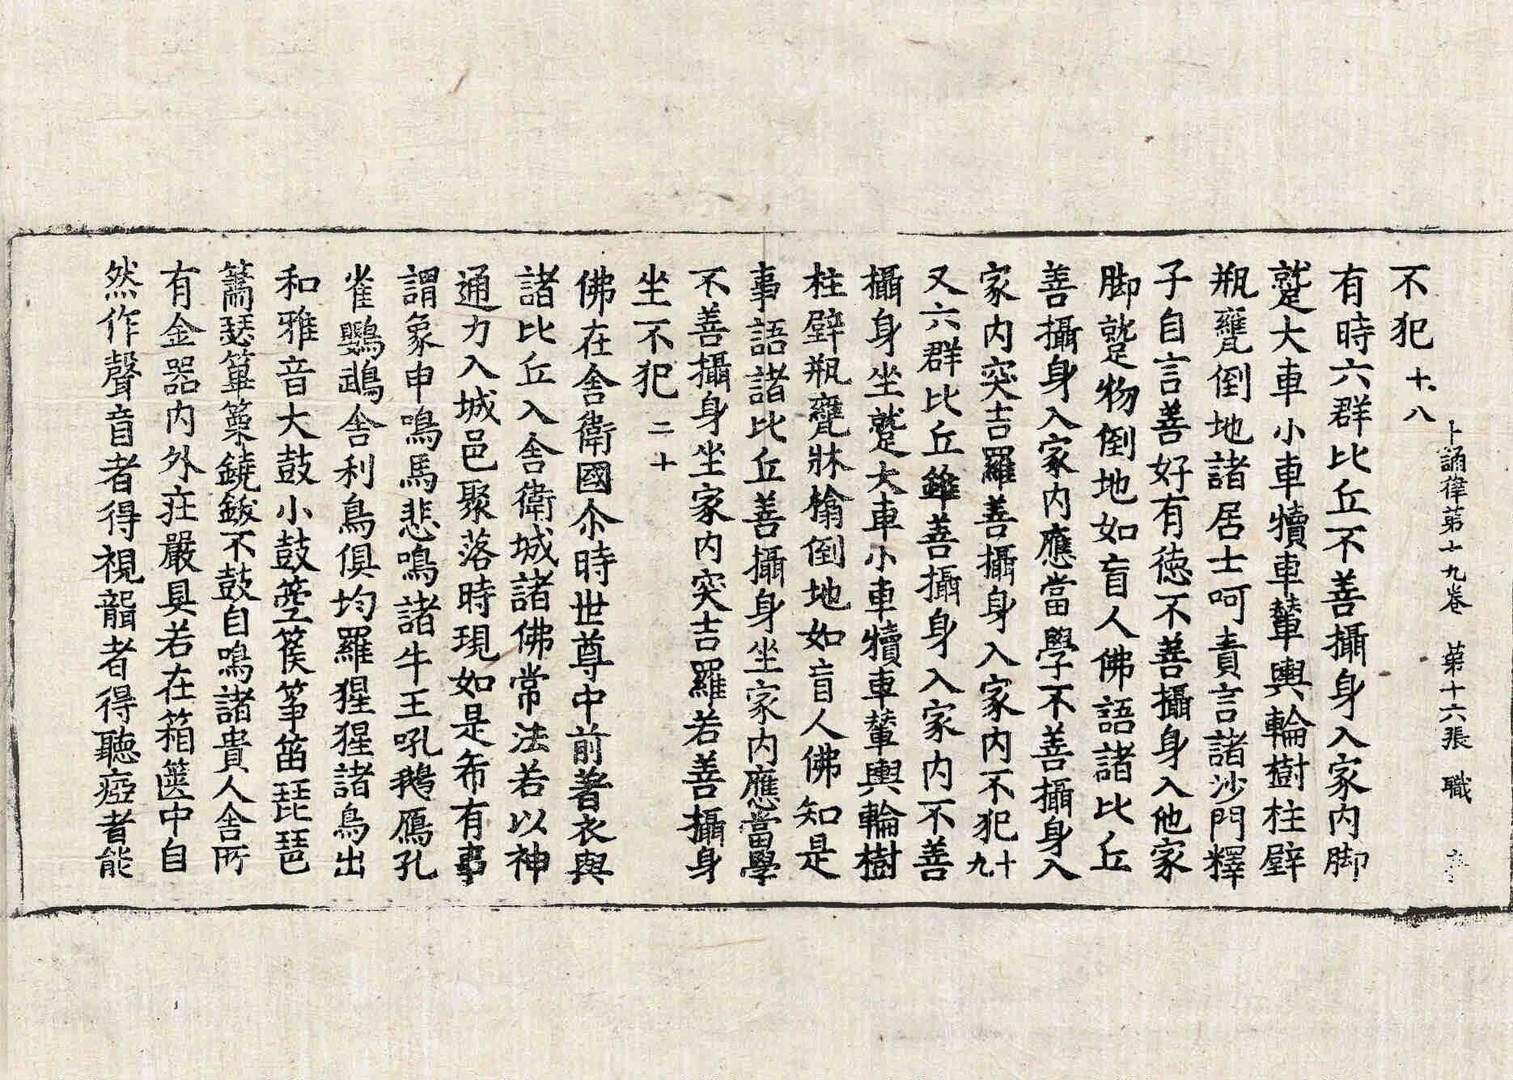 十誦律第十九卷 第十六張 職
不犯 十八
有時六群比丘不善攝身入家内脚
蹵大車小車犢車輦輿輪樹柱壁
瓶甕倒地諸居士呵責言諸沙門釋
子自言善好有德不善攝身入他家
脚蹵物倒地如盲人佛語諸比丘
善攝身入家内應當學不善攝身入
家内突吉羅善攝身入家内不犯十九
又六群比丘雖善攝身入家内不善
攝身坐蹵大車小車犢車輦輿輪樹
柱壁瓶甕牀榻倒地如盲人佛知是
事語諸比丘善攝身坐家内應當學
不善攝身坐家内突吉羅若善攝身
坐不犯 二十
佛在舍衛國尒時世尊中前著衣與
諸比丘入舍衛城諸佛常法若以神
通力入城邑聚落時現如是希有事
謂象申鳴馬悲鳴諸牛王吼鵝鴈孔
雀鸚鵡舍利鳥俱均羅猩猩諸鳥出
和雅音大鼓小鼓箜篌筝笛琵琶
簫瑟篳篥鐃鈸不鼓自鳴諸貴人舍所
有金器内外莊嚴具若在箱篋中自
然作聲盲者得視聾者得聽瘂者能